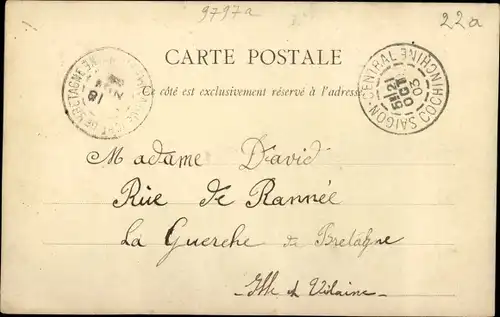 9797a
22a
CARTE POSTALE
Ce côté est exclusivement réservé à l'adresse
SAIGON-CENTRAL COCHINCHINE
OCT
03
Madame David
Rue de Rannée
La Guerche de Bretagne
Ille et Vilaine